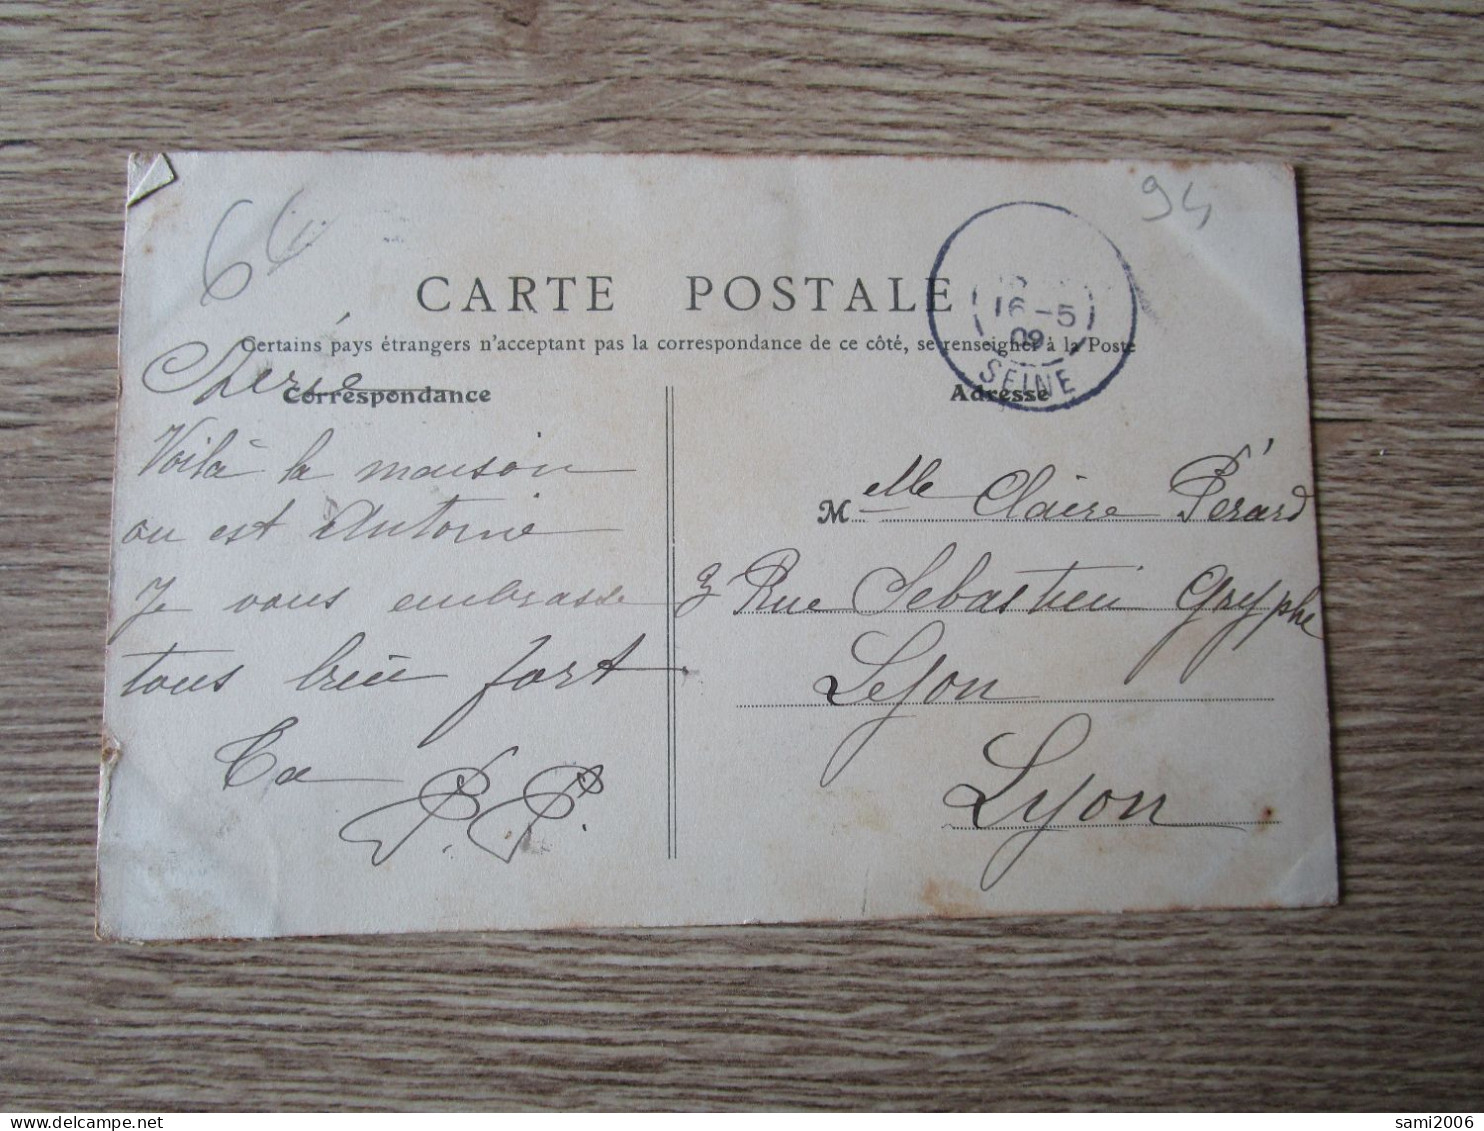 6€
94
CARTE POSTALE
Certains pays étrangers n'acceptant pas la correspondance de ce côté, se renseigner à la Poste
16 -5
09
SEINE
Correspondance
Chérie
Voilà la maison
ou est Antoine
Je vous embrasse
tous bien fort
Ta
P. P.
Adresse
Melle Claire Pérard
3 Rue Sebastien Gryphe
Lyon
Lyon
sami2006